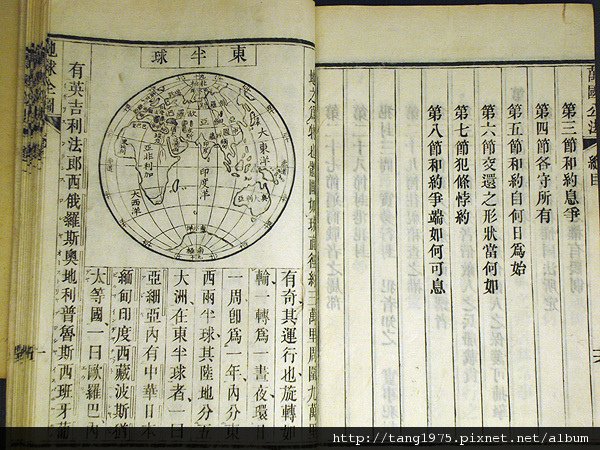 萬國公法
總目
第三節和約息爭
第四節各守所有
第五節和約自何日爲始
第六節交還之形狀當何如
第七節犯條悖約
第八節和約爭端如何可息
東半球
大東洋
印度洋
亞非利加
大西洋
地之爲物也體圓如球直徑約三萬里周圍九萬里
有奇其運行也旋轉如
輪一轉爲一晝夜環日
一周卽爲一年內分東
西兩半球其陸地分五
大洲在東半球者一曰
亞細亞內有中華日本
緬甸印度西藏波斯猶
太等國一曰歐羅巴內
有英吉利法郎西俄羅斯奧地利普魯斯西班牙葡
地球全圖
http://tang1975.pixnet.net/album